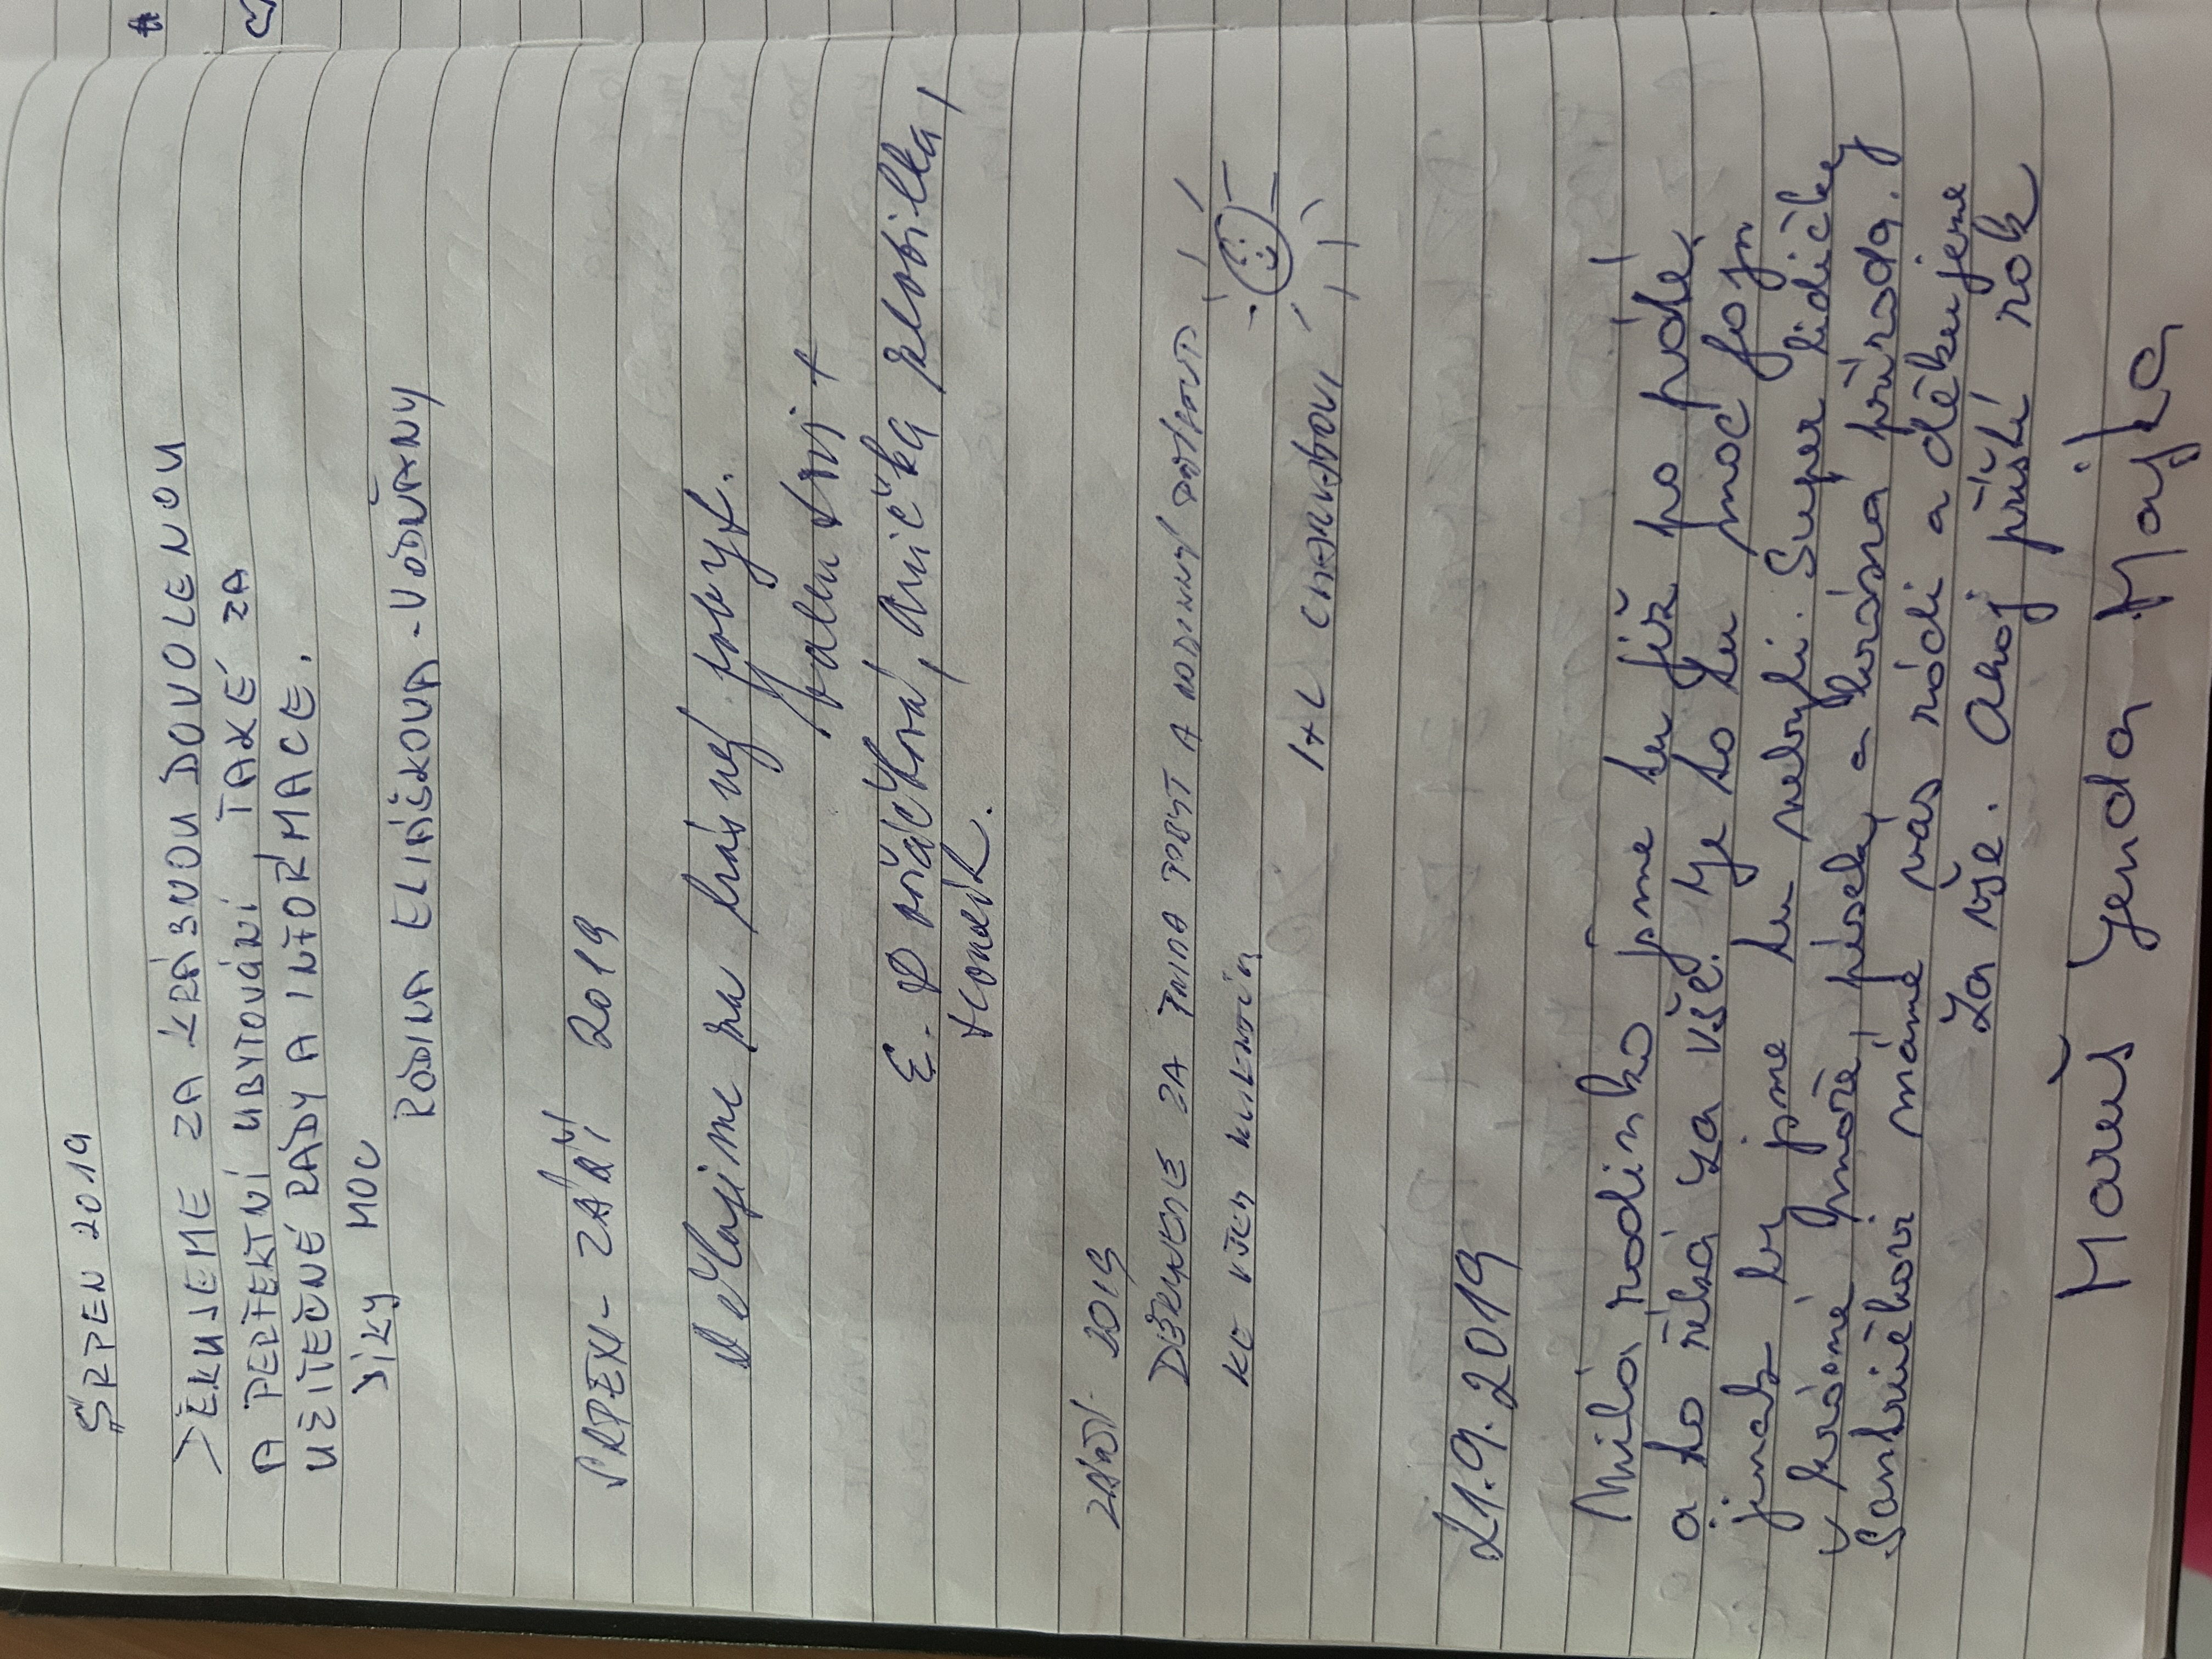 SRPEN 2019
DĚKUJEME ZA KRÁSNOU DOVOLENOU
A PERFEKTNÍ UBYTOVÁNÍ TAKÉ ZA
UŽITEČNÉ RADY A INFORMACE.
DÍKY MOC
RODINA ELIÁŠKOVA - VODŇANY
SRPEN - ZÁŘÍ 2019
Děkujime za krásný pobyt.
E. Ptáčková, Anička
ZÁŘÍ 2019
DĚKUJEME ZA POBYT A RODINNÝ
KE VŠEM KLIENTŮM
I + L
21.9.2019
Milá rodinko jsme tu již po páté
a to říká za vše. Je to tu moc fajn
jinak by jsme tu nebyli. Super lidičky
v krásné moře, písek, a krásná příroda.
máme vás rádi a děkujeme
za vše. Ahoj příští rok
Mareš Jenda Majka